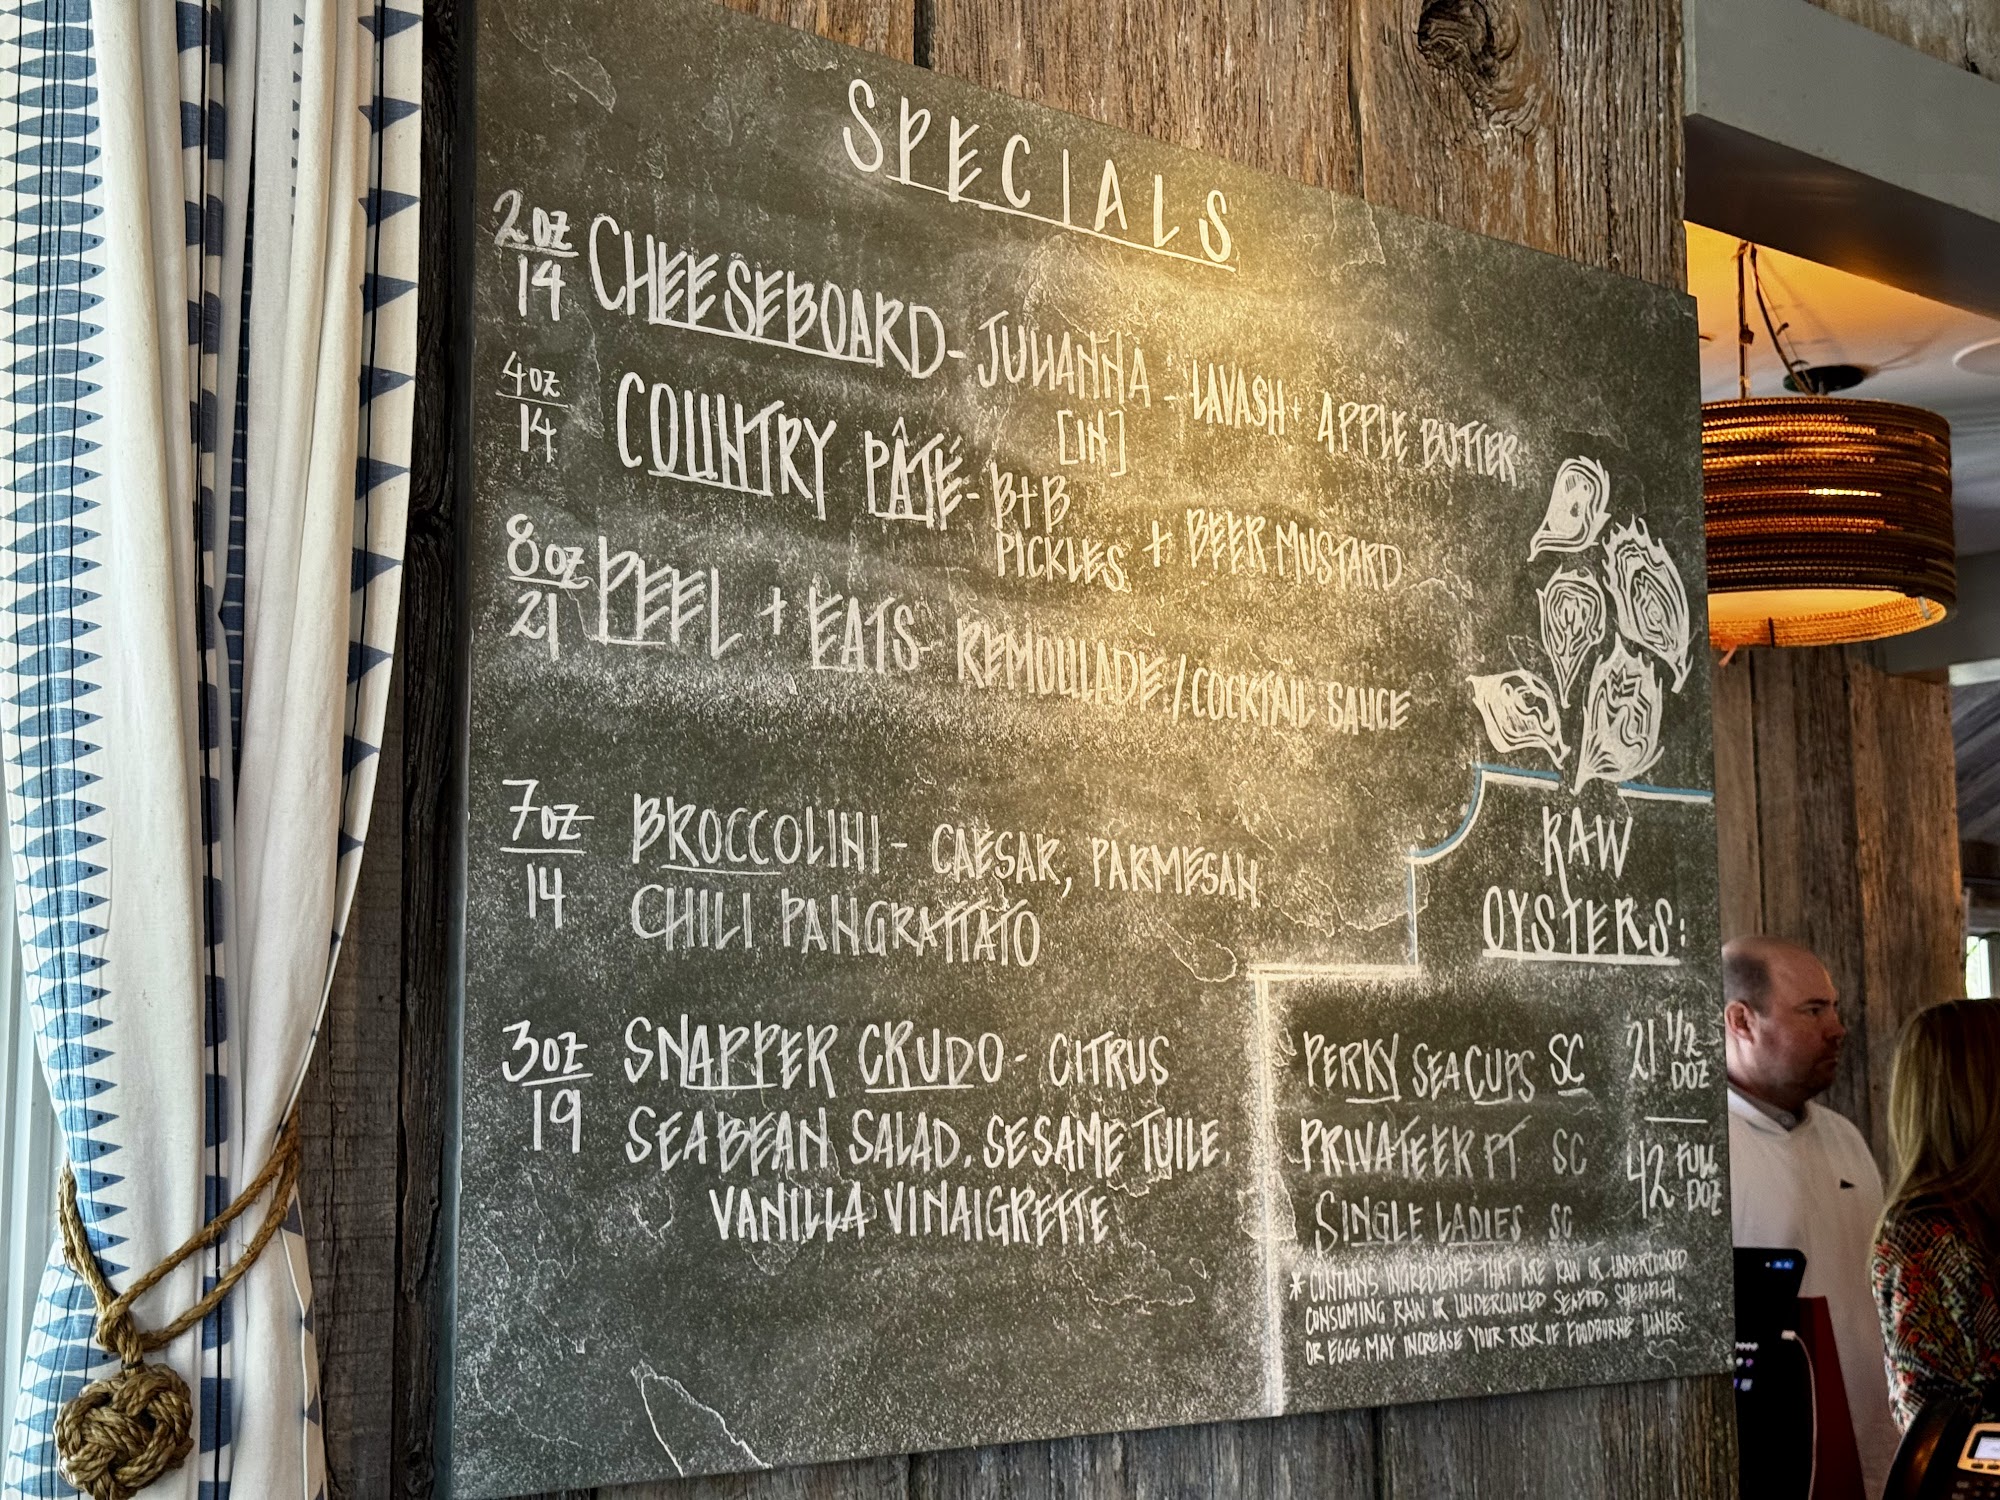 SPECIALS
2oz CHEESEBOARD - JULIANNA - LAVASH + APPLE BUTTER
14 [IN]
4oz COUNTRY PÂTÉ - B+B PICKLES + BEER MUSTARD
14
8oz PEEL + EATS - REMOULADE / COCKTAIL SAUCE
21
7oz BROCCOLINI - CAESAR, PARMESAN,
14 CHILI PANGRATTATO
3oz SNAPPER CRUDO - CITRUS
19 SEA BEAN SALAD, SESAME TUILE,
VANILLA VINAIGRETTE
RAW
OYSTERS:
PERKY SEA CUPS SC 21 1/2 DOZ
PRIVATEER PT SC 42 FULL DOZ
SINGLE LADIES SC
* CONTAINS INGREDIENTS THAT ARE RAW OR UNDERCOOKED
CONSUMING RAW OR UNDERCOOKED SEAFOOD, SHELLFISH,
OR EGGS MAY INCREASE YOUR RISK OF FOODBORNE ILLNESS.